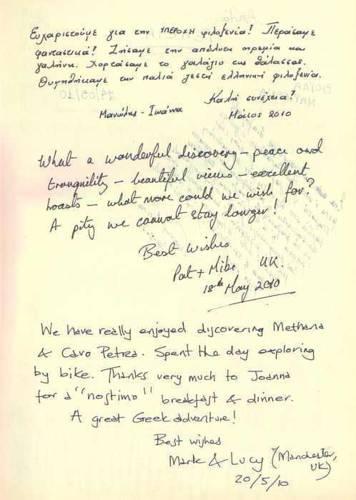 Ευχαριστούμε για την ΥΠΕΡΟΧΗ φιλοξενία! Περάσαμε
φανταστικά! Ζήσαμε την απόλυτη ηρεμία και
γαλήνη. Χορτάσαμε το γαλάζιο της θάλασσας.
Θυμηθήκαμε την παλιά ζεστή ελληνική φιλοξενία.
Καλή συνέχεια!
Μανώλης - Ιωάννα Μάιος 2010
What a wonderful discovery - peace and
tranquility - beautiful views - excellent
hosts - what more could we wish for?
A pity we cannot stay longer!
Best Wishes
Pat + Mike UK.
18th May 2010
We have really enjoyed discovering Methana
& Cavo Petra. Spent the day exploring
by bike. Thanks very much to Joanna
for a "nostimo" breakfast & dinner.
A great Greek adventure!
Best wishes
Mark & Lucy (Manchester,
UK)
20/5/10